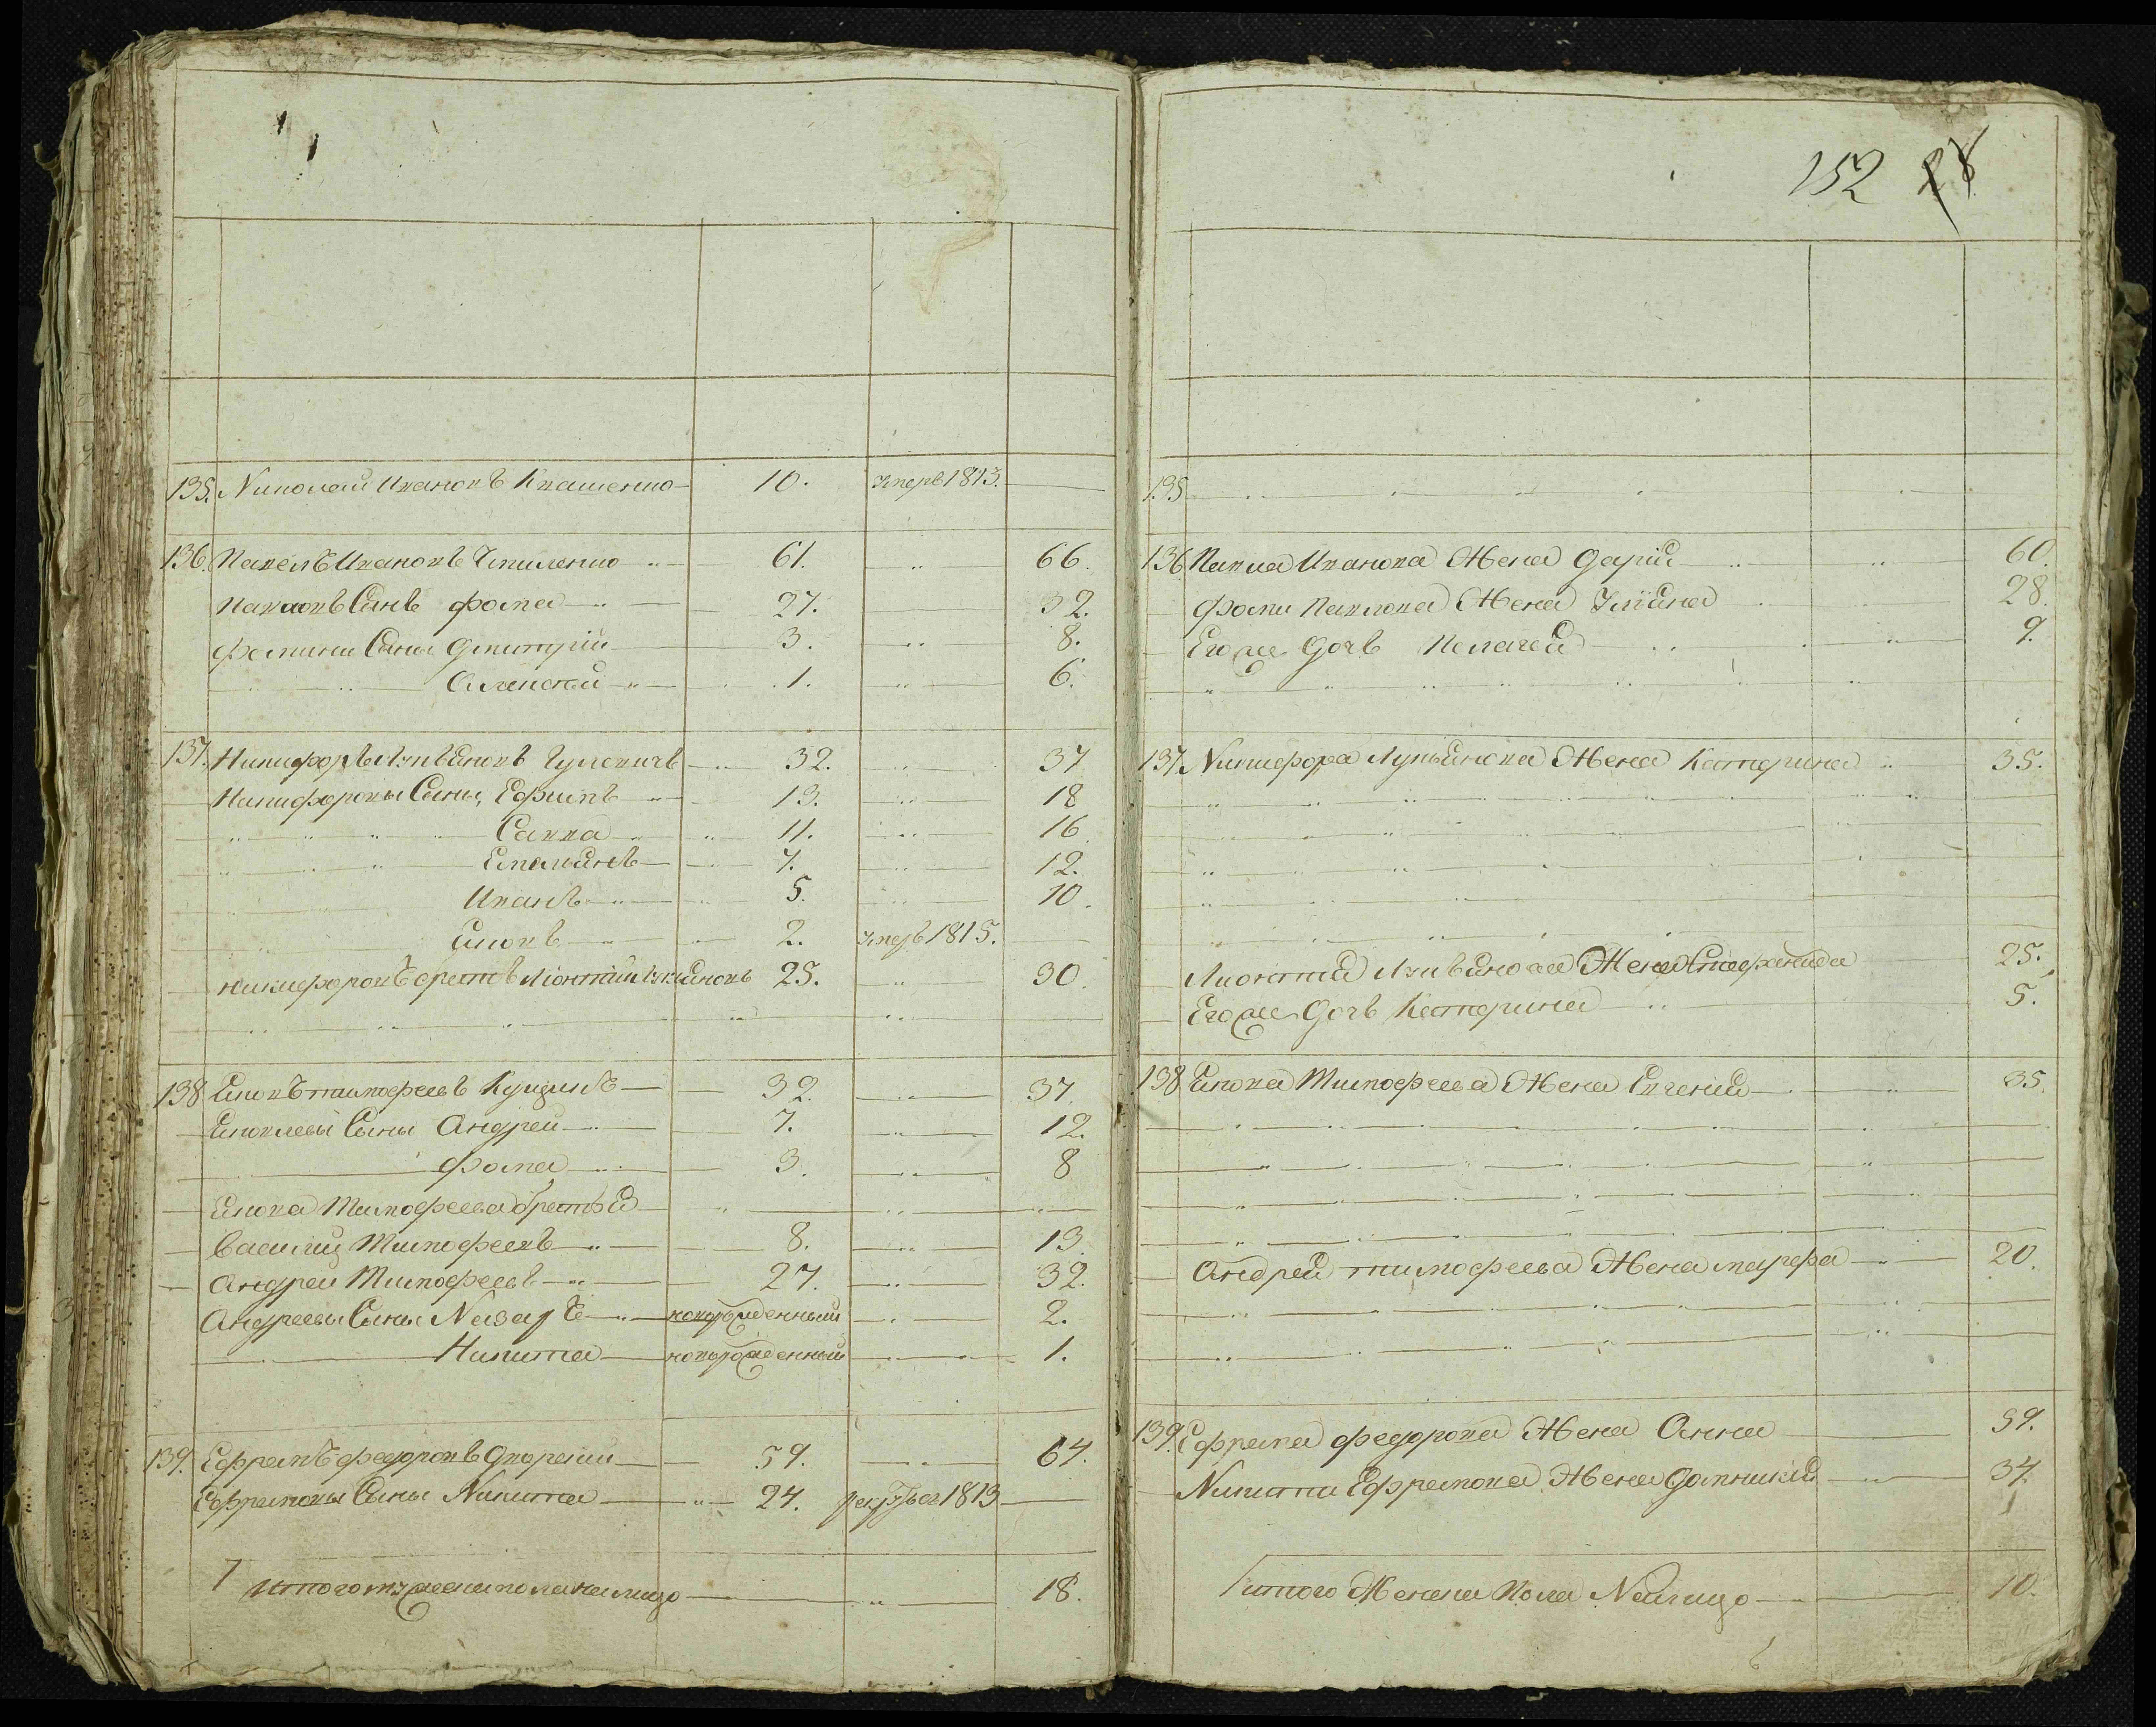 152 28
135. Николай Ивановъ Квашенко 10. умеръ 1813.
136. Павелъ Ивановъ 61. 66.
Павловъ Сынъ Фома 27. 32.
Фомины Сыны Дмитрій 3. 8.
Алексей 1. 6.
137. Никифоръ Лукьяновъ 32. 37
Никифоровы Сыны, Ефимъ 13. 18
Савва 11. 16
Емельянъ 7. 12.
Иванъ 5. 10.
Яковъ 2. умеръ 1815.
Никифоровъ братъ Леонтий Лукьяновъ 25. 30.
138 Яковъ Тимофеевъ Кущинъ 32. 37.
Яковлевы Сыны Андрей 7. 12.
Фома 3. 8
Якова Тимофеева братья
Василий Тимофеевъ 8. 13.
Андрей Тимофеевъ 27. 32.
Андреевы Сыны Назаръ новорожденный 2.
Никита новорожденный 1.
139. Ефремъ Федоровъ 59. 64.
Ефремовы Сыны Никита 24. рекрутъ 1813
Итого мужеска пола налицо 18.
135
136 Павла Иванова Жена Дарія 60.
Фомы Павлова Жена Ульяна 28.
Его же Дочь Пелагея 9.
137. Никифора Лукьянова Жена Катерина 35.
Леонтия Лукьянова Жена Степанида 25.
Его же Дочь Катерина 5.
138 Якова Тимофеева Жена Евгения 35.
Андрея Тимофеева Жена Марфа 20.
139. Ефрема Федорова Жена Анна 59.
Никиты Ефремова Жена Домникия 34.
итого Женска Пола Налицо 10.